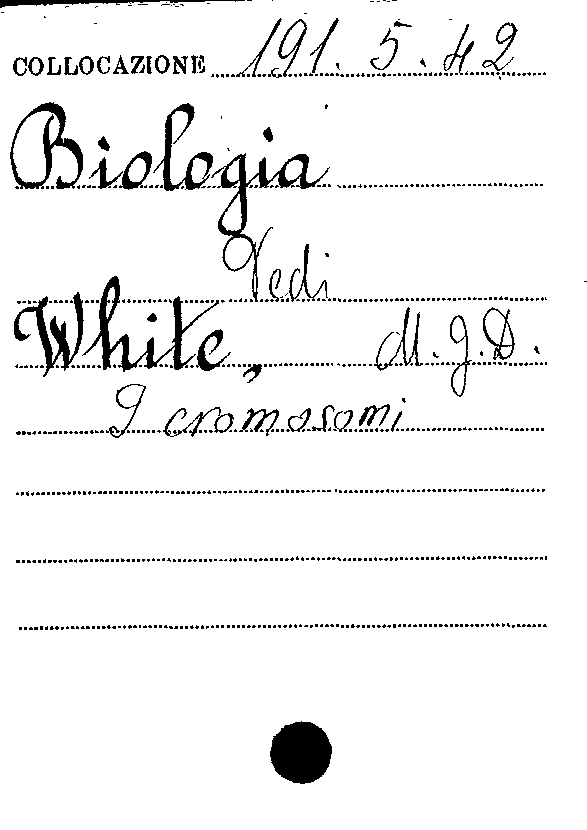 COLLOCAZIONE 191. 5. 42
Biologia
Vedi
White, M. J. D.
I cromosomi